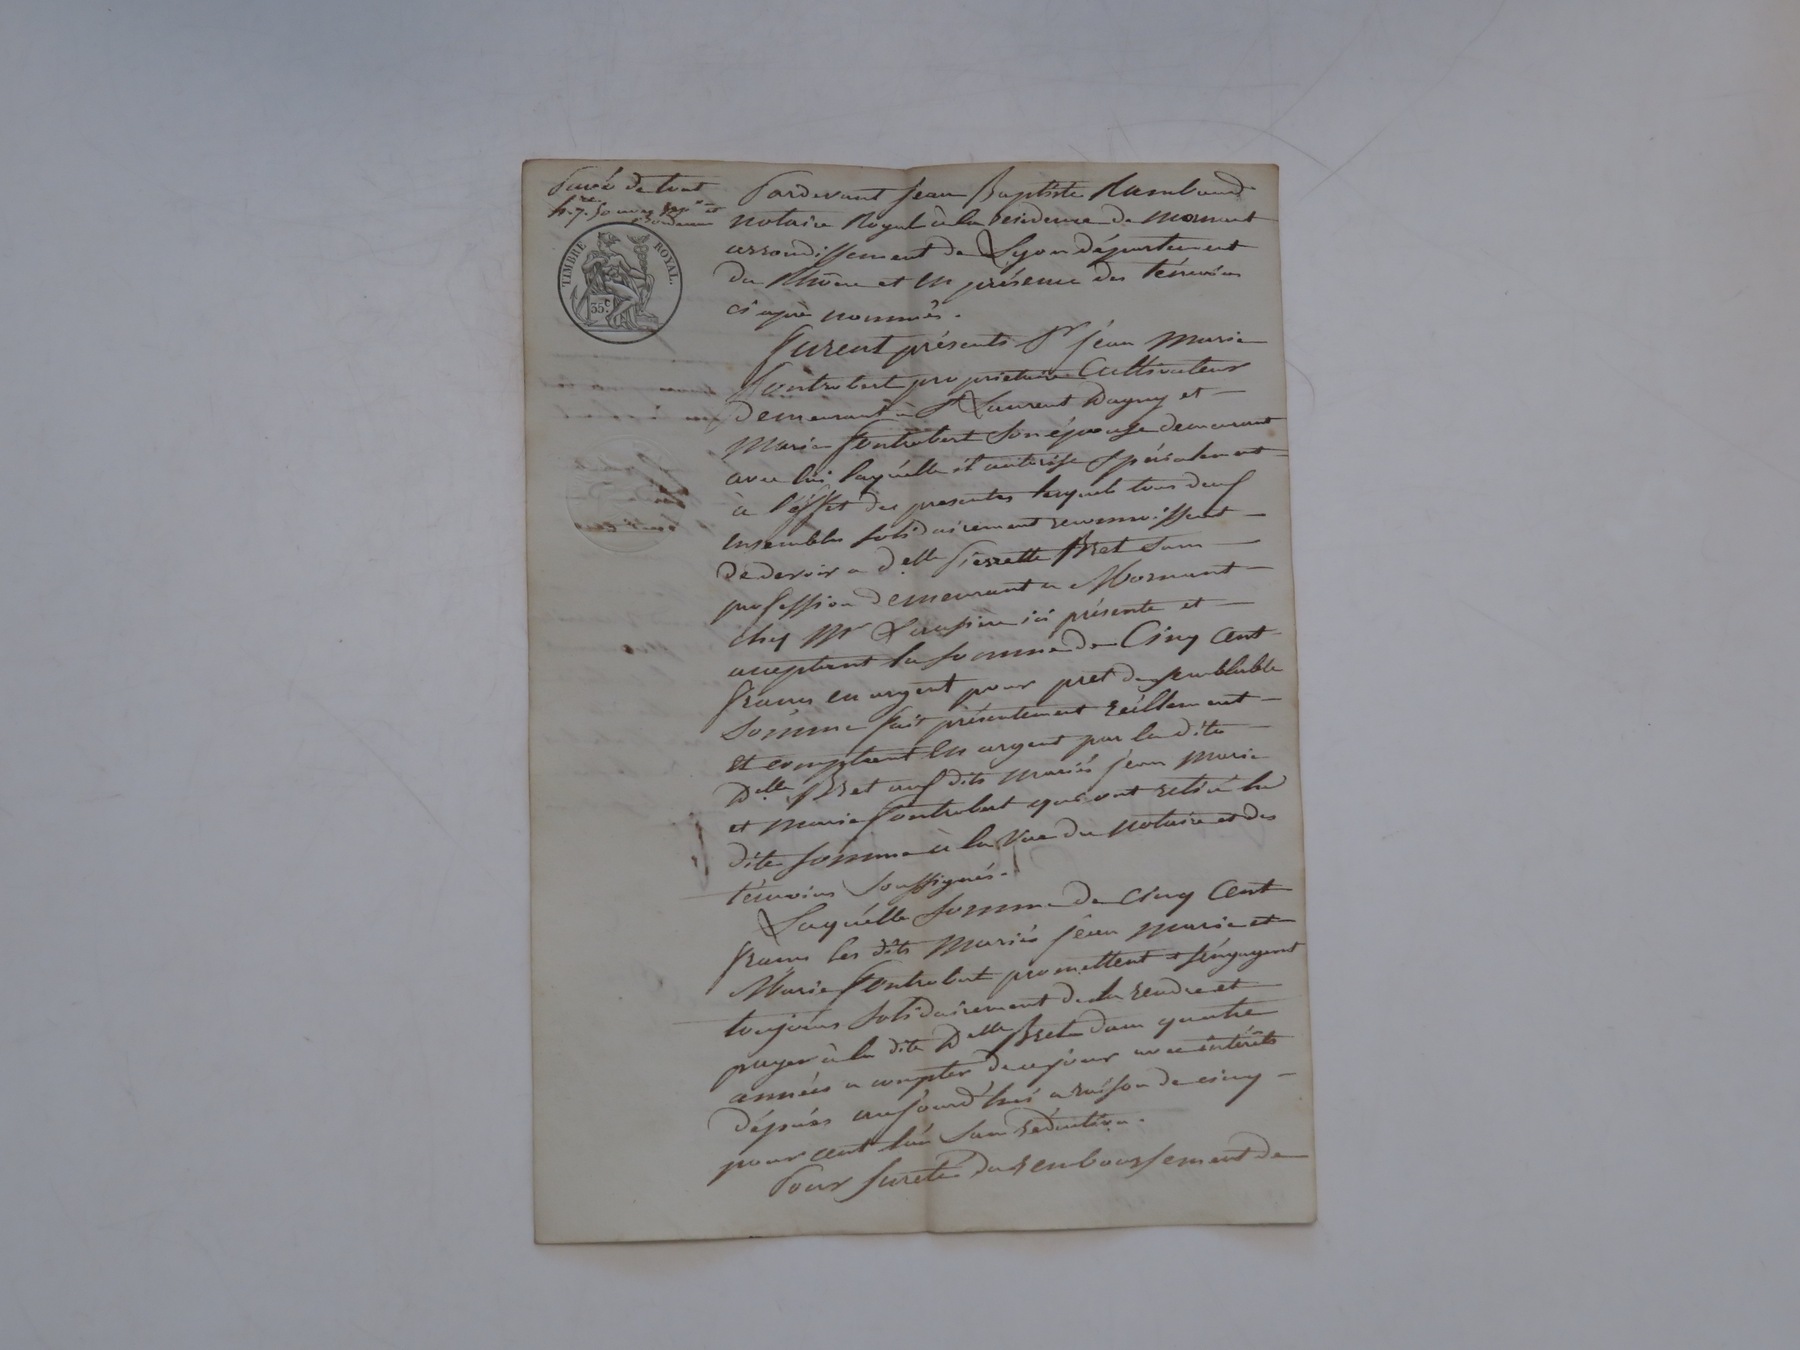 Payé de tout
TIMBRE ROYAL
35 c
Pardevant jean Baptiste Rambaud
notaire Royal à la residence de mornant
arrondissement de Lyon département
du Rhône et en présence des témoins
ci après nommés.
furent présents Sr jean marie
fontrobert propriétaire Cultivateur
demeurant a St Laurent Dagny et
marie fontrobert son épouse demeurant
avec lui laquélle il autorise spécialement
à l'éffet des presentes lesquels tous deux
ensembles solidairement reconnoissent
de devoir a delle pierrette Bret sans
profession demeurant a Mornant
chez Mr ici présente et
acceptant la somme de Cinq Cent
francs en argent pour pret de semblable
somme fait présentement réellement
et comptant en argent par la dite
Delle Bret aux dits mariés jean marie
et marie fontrobert qui ont retiré la
dite somme à la vue du notaire et des
témoins soussignés.
Laquélle somme de Cinq Cent
francs les dits mariés jean marie et
Marie fontrobert promettent et s'éngagent
toujours solidairement de la rendre et
payer à la dite Delle Bret dans quatre
années a compter de ce jour avec intérêts
dépuis aujourd'hui a raison de cinq
pour cent l'an sans réduction.
Pour sureté du remboursement de